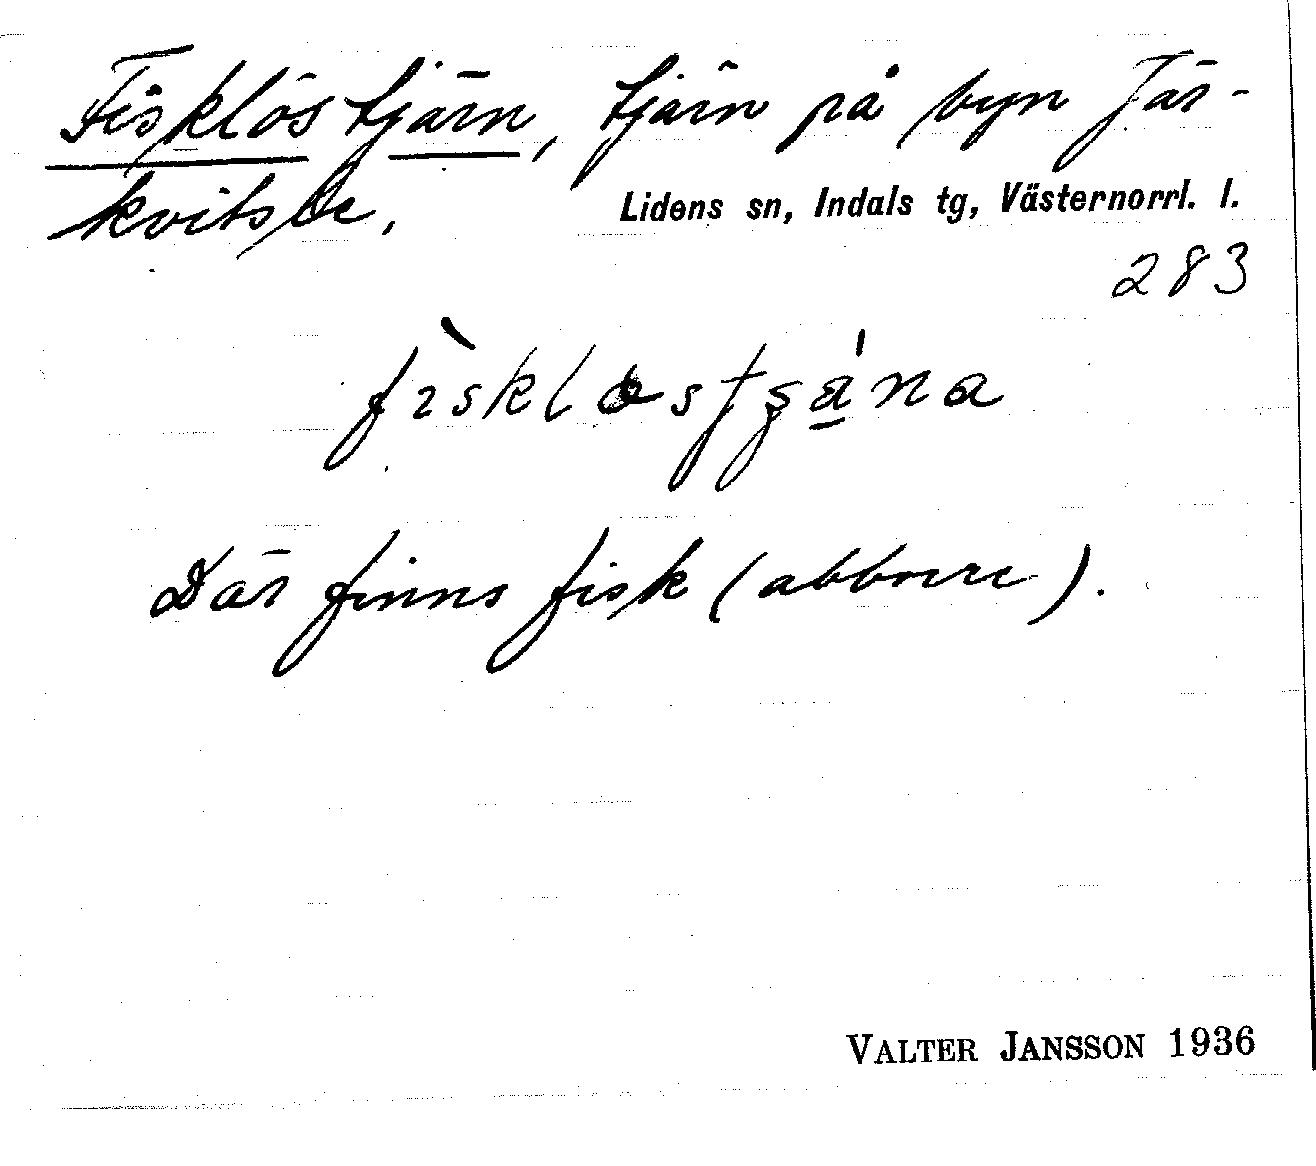 Fisklöstjärn, tjärn på byn Jär-
kvitsle.
Lidens sn, Indals tg, Västernorrl. l.
283
Där finns fisk (abborre).
VALTER JANSSON 1936